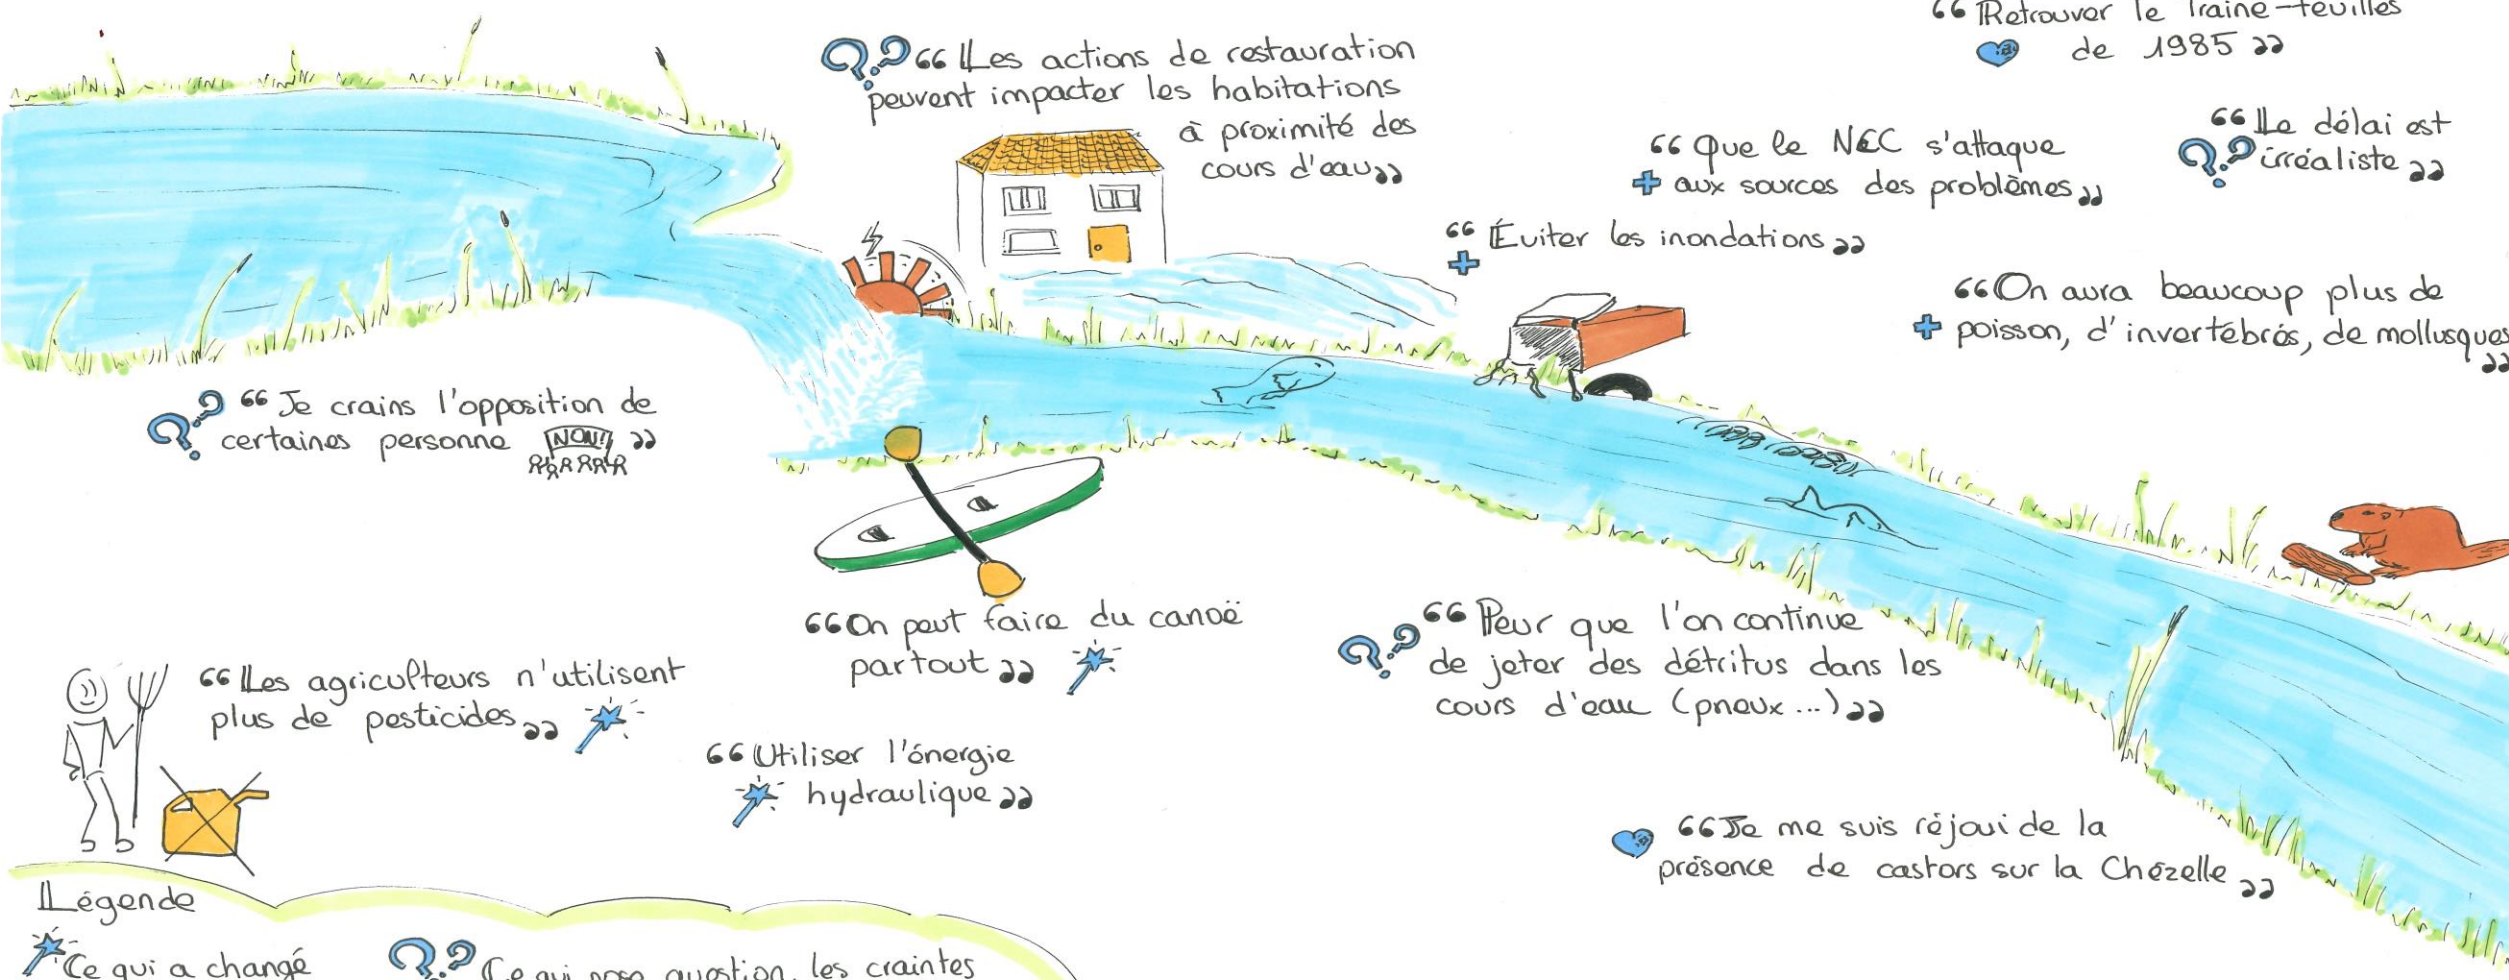 “ Retrouver le Traine-feuilles
de 1985 ”
“ Les actions de restauration
peuvent impacter les habitations
à proximité des
cours d'eau ”
“ Le délai est
irréaliste ”
“ Que le NEC s'attaque
aux sources des problèmes ”
“ Éviter les inondations ”
“ On aura beaucoup plus de
poisson, d'invertébrés, de mollusques
”
“ Je crains l'opposition de
certaines personne NON! ”
“ On peut faire du canoë
partout ”
“ Peur que l'on continue
de jeter des détritus dans les
cours d'eau (pneux...) ”
“ Les agriculteurs n'utilisent
plus de pesticides ”
“ Utiliser l'énergie
hydraulique ”
“ Je me suis réjoui de la
présence de castors sur la Chézelle ”
Légende
Ce qui a changé
Ce qui pose question, les craintes